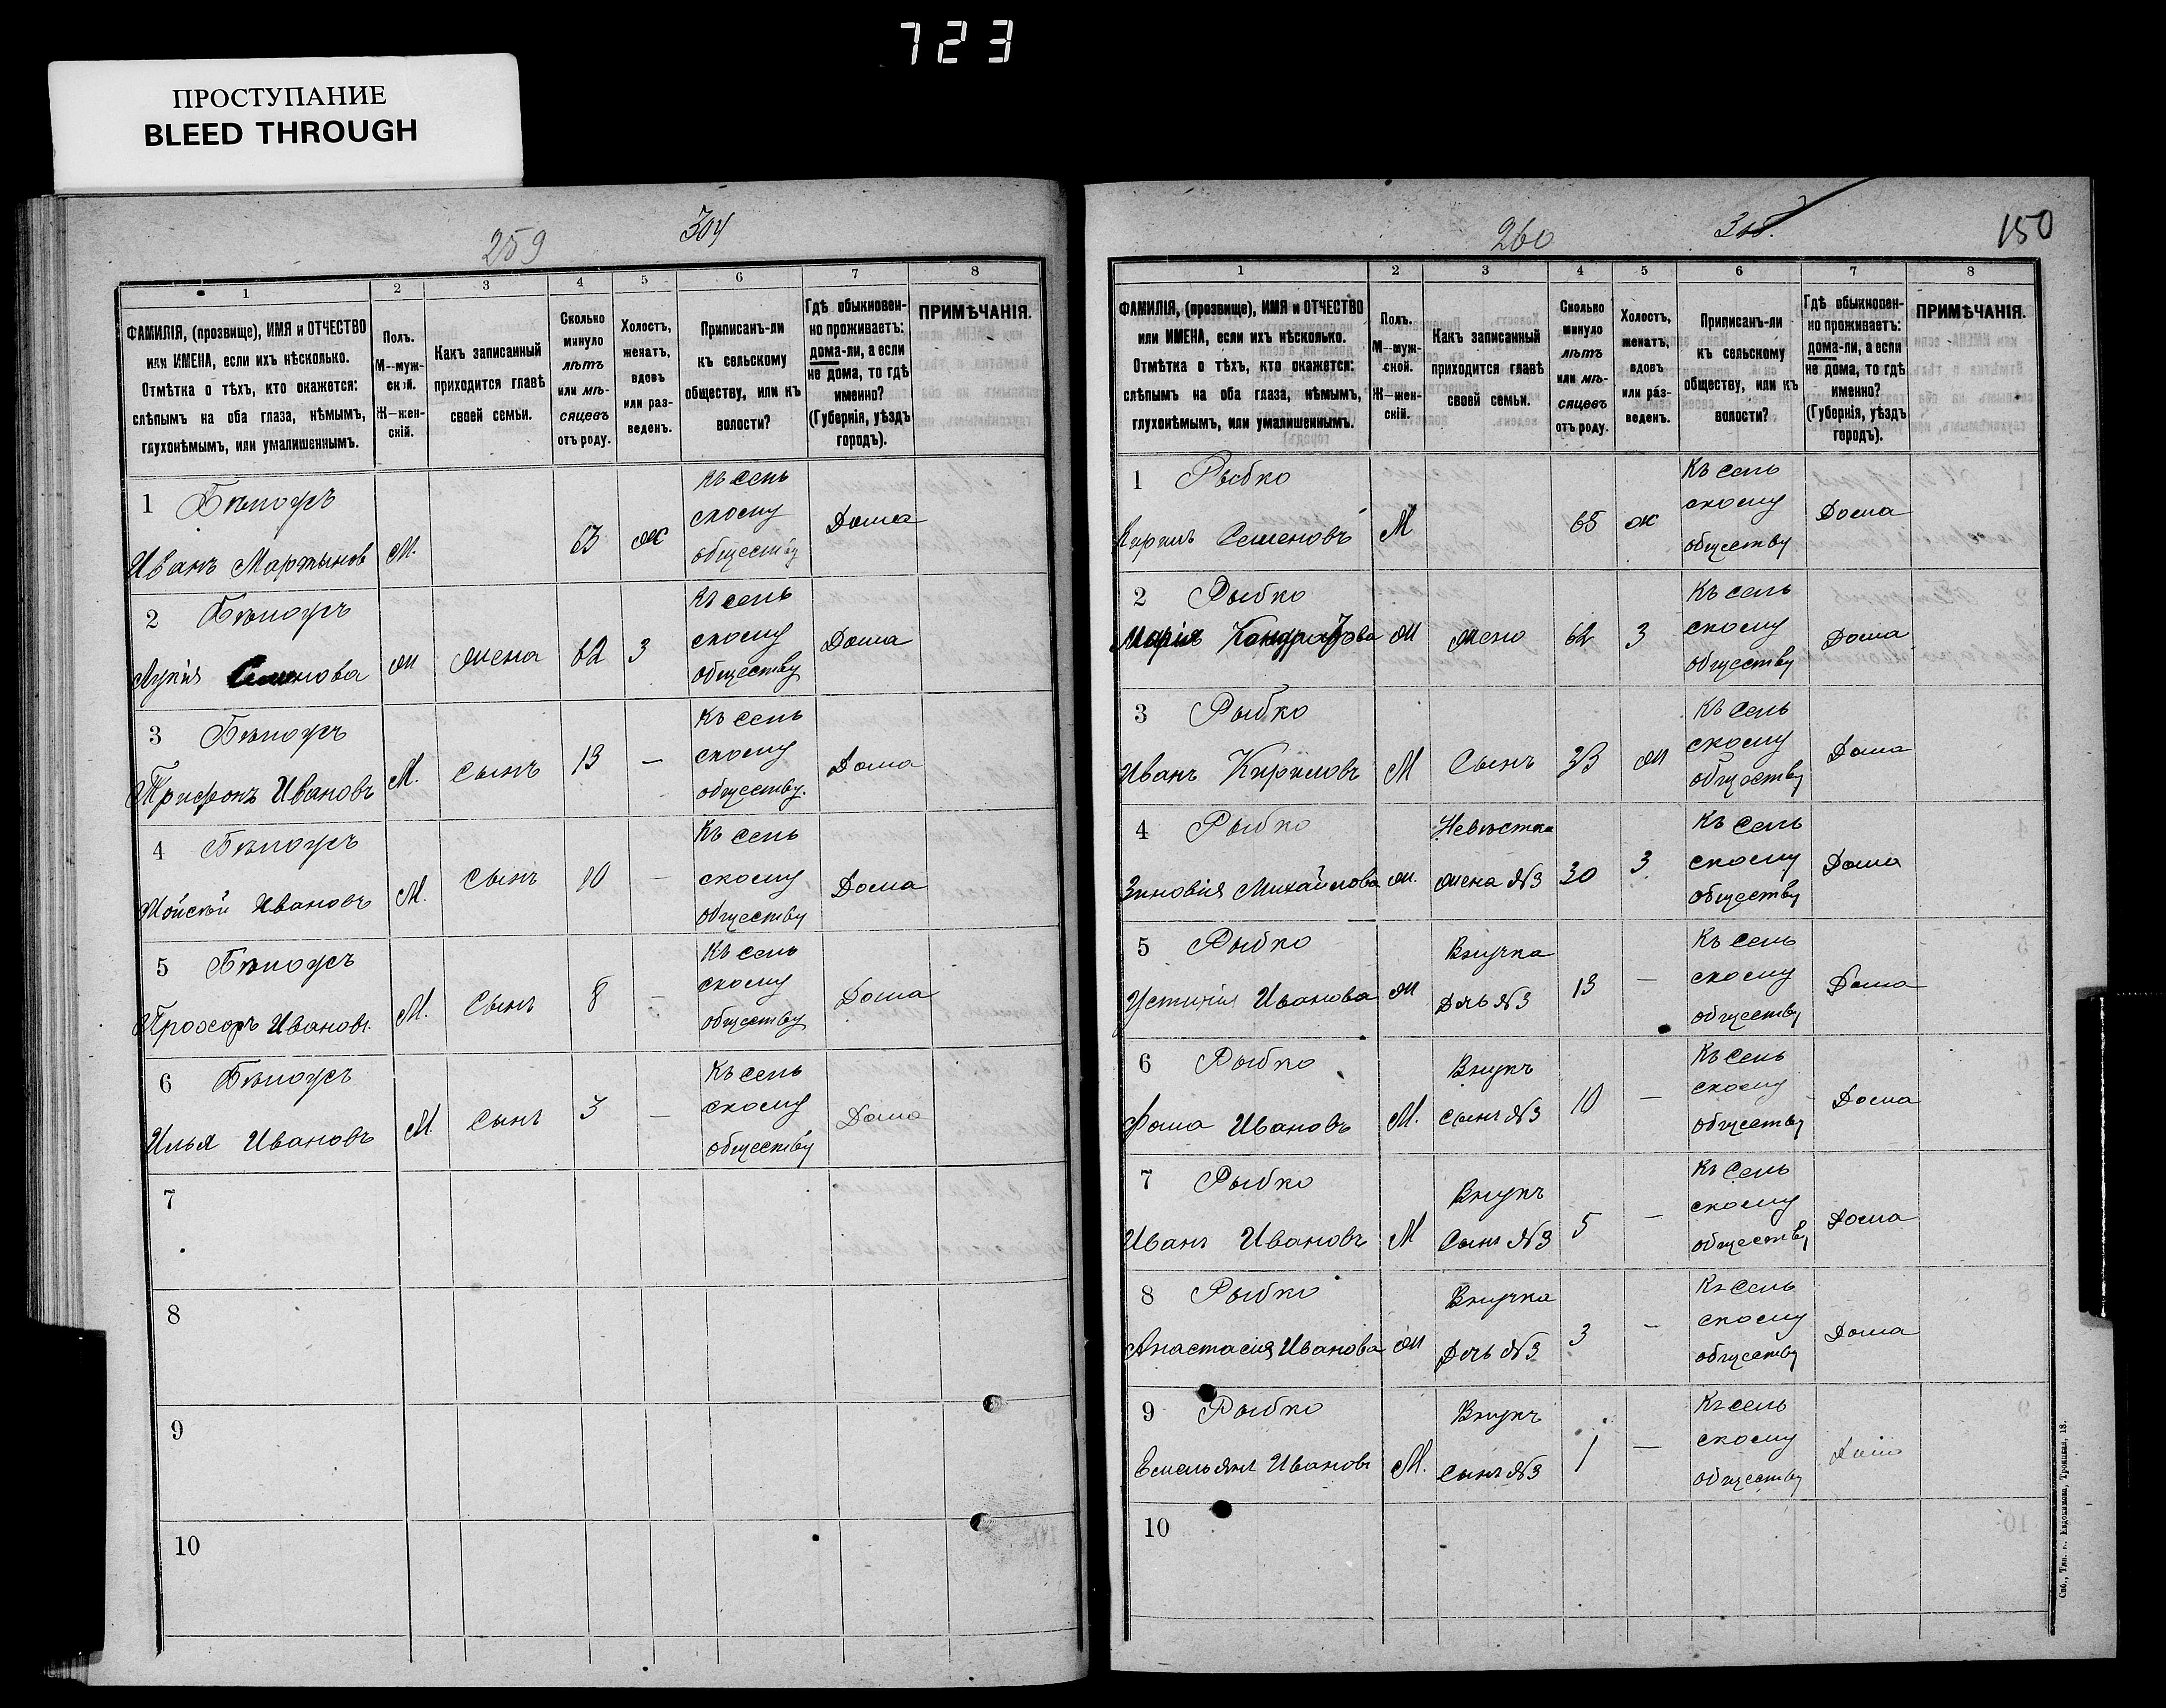 723
ПРОСТУПАНИЕ
BLEED THROUGH
259 304
1 2 3 4 5 6 7 8
ФАМИЛІЯ, (прозвище), ИМЯ и ОТЧЕСТВО или ИМЕНА, если ихъ нѣсколько. Отмѣтка о тѣхъ, кто окажется: слѣпымъ на оба глаза, нѣмымъ, глухонѣмымъ, или умалишеннымъ.
Полъ. М—мужской. Ж—женскій.
Какъ записанный приходится главѣ своей семьи.
Сколько минуло лѣтъ или мѣсяцевъ отъ роду.
Холостъ, женатъ, вдовъ или разведенъ.
Приписанъ-ли къ сельскому обществу, или къ волости?
Гдѣ обыкновенно проживаетъ: дома-ли, а если не дома, то гдѣ именно? (Губернія, уѣздъ городъ).
ПРИМѢЧАНІЯ.
1 Бѣлоусъ
Иванъ Мартынов М. 63 ж Къ сель скому обществу Дома
2 Бѣлоусъ
Лукія Семенова ж жена 62 3 Къ сель скому обществу Дома
3 Бѣлоусъ
Трифонъ Ивановъ М. Сынъ 13 — Къ сель скому обществу. Дома
4 Бѣлоусъ
Мойсѣй Ивановъ М. Сынъ 10 — Къ сель скому обществу Дома
5 Бѣлоусъ
Прохоръ Ивановъ М. Сынъ 8 — Къ сель скому обществу Дома
6 Бѣлоусъ
Илья Ивановъ М. Сынъ 3 — Къ сель скому обществу Дома
7
8
9
10
260 150
1 2 3 4 5 6 7 8
ФАМИЛІЯ, (прозвище), ИМЯ и ОТЧЕСТВО или ИМЕНА, если ихъ нѣсколько. Отмѣтка о тѣхъ, кто окажется: слѣпымъ на оба глаза, нѣмымъ, глухонѣмымъ, или умалишеннымъ.
Полъ. М—мужской. Ж—женскій.
Какъ записанный приходится главѣ своей семьи.
Сколько минуло лѣтъ или мѣсяцевъ отъ роду.
Холостъ, женатъ, вдовъ или разведенъ.
Приписанъ-ли къ сельскому обществу, или къ волости?
Гдѣ обыкновенно проживаетъ: дома-ли, а если не дома, то гдѣ именно? (Губернія, уѣздъ городъ).
ПРИМѢЧАНІЯ.
1 Рыбко
Кирилъ Семеновъ М 65 ж Къ сель скому обществу Дома
2 Рыбко
Марія Кондратова ж жена 62 3 Къ сель скому обществу Дома
3 Рыбко
Иванъ Кириловъ М Сынъ 33 ж Къ сель скому обществу Дома
4 Рыбко Невѣстка
Зиновія Михайлова ж. жена №3 30 3 Къ сель скому обществу Дома
5 Рыбко Внучка
Устинія Иванова ж Дочь №3 13 — Къ сель скому обществу Дома
6 Рыбко Внукъ
Фома Ивановъ М. Сынъ №3 10 — Къ сель скому обществу Дома
7 Рыбко Внукъ
Иванъ Ивановъ М Сынъ №3 5 — Къ сель скому обществу Дома
8 Рыбко Внучка
Анастасія Иванова ж Дочь №3 3 — Къ сель скому обществу Дома
9 Рыбко Внукъ
Емельянъ Ивановъ М. Сынъ №3 1 — Къ сель скому обществу Дома
10